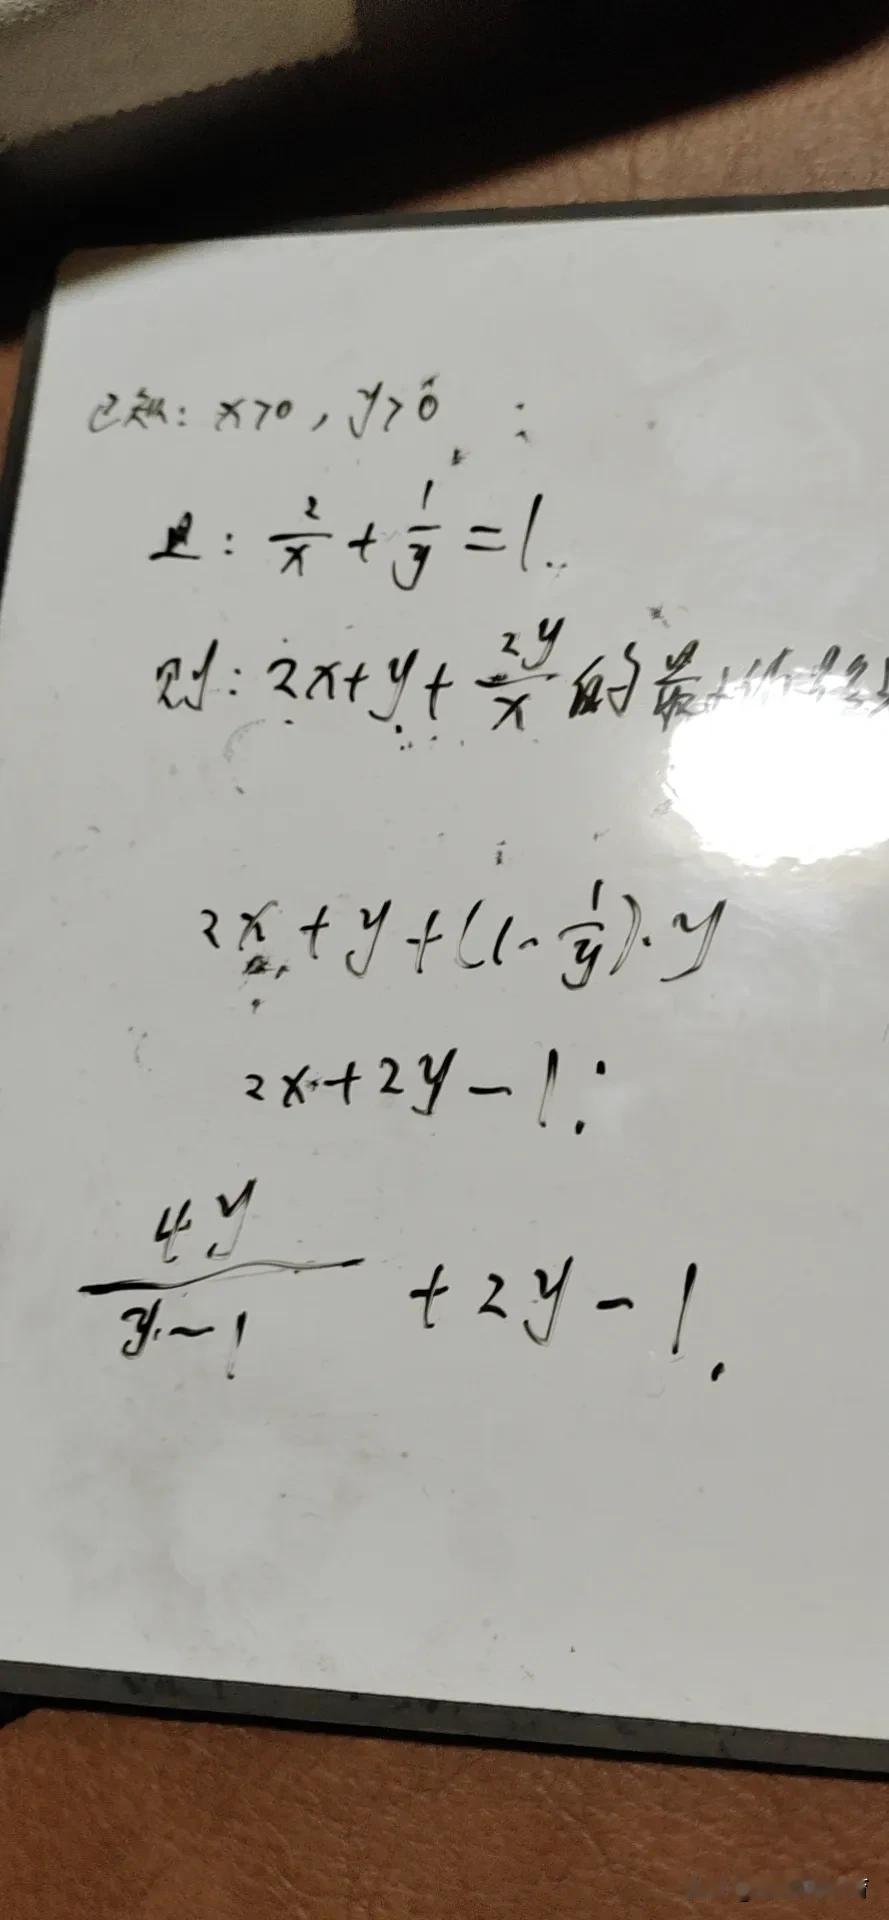 已知: x>0, y>0 :
且: 2/x + 1/y = 1.
则: 2x+y+ 2y/x 的最
2x + y + (1 - 1/y)·y
2x + 2y - 1:
4y/(y-1) + 2y - 1.